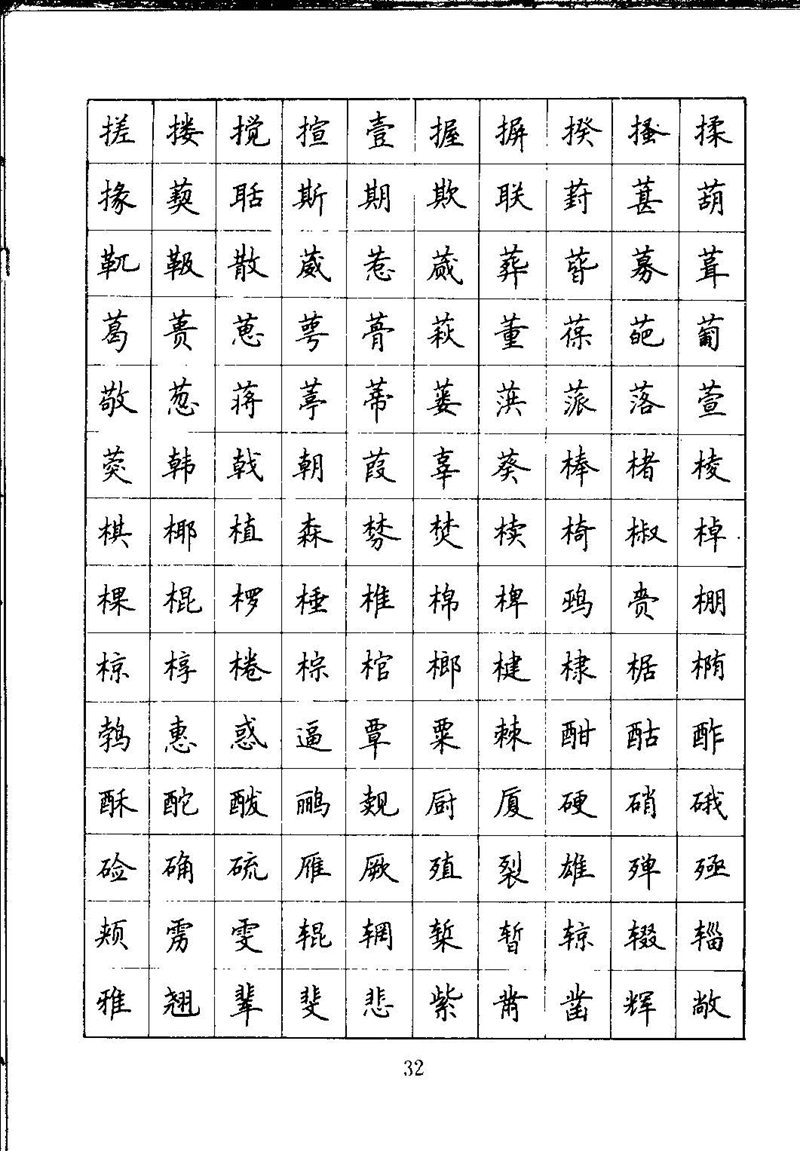 搓搂搅揎壹握摒揆搔揉
掾葜聒斯期欺联葑葚葫
靰靸散葳惹蒇葬蒈募葺
葛蒉葸萼蓇萩董葆葩葡
敬葱蒋葶蒂蒌葓蒎落萱
葖韩戟朝葭辜葵棒楮棱
棋椰植森棼焚椟椅椒棹
棵棍椤棰椎棉椑鹀赍棚
椋椁棬棕棺榔楗棣椐椭
鹁惠惑逼覃粟棘酣酤酢
酥酡酦鹂觌厨厦硬硝硪
硷确硫雁厥殖裂雄殚殛
颊雳雯辊辋椠暂辌辍辎
雅翘辈斐悲紫黹凿辉敞
32